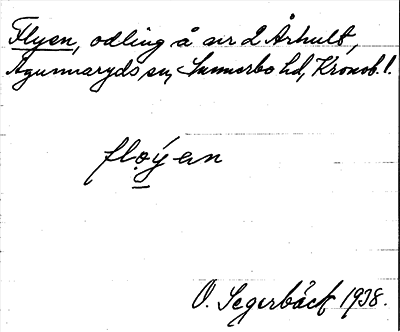 Flyen, odling å nr 2 Århult,
Agunnaryds sn, Sunnerbo hd, Kronob. l.
fløýen
O. Segerbäck 1938.